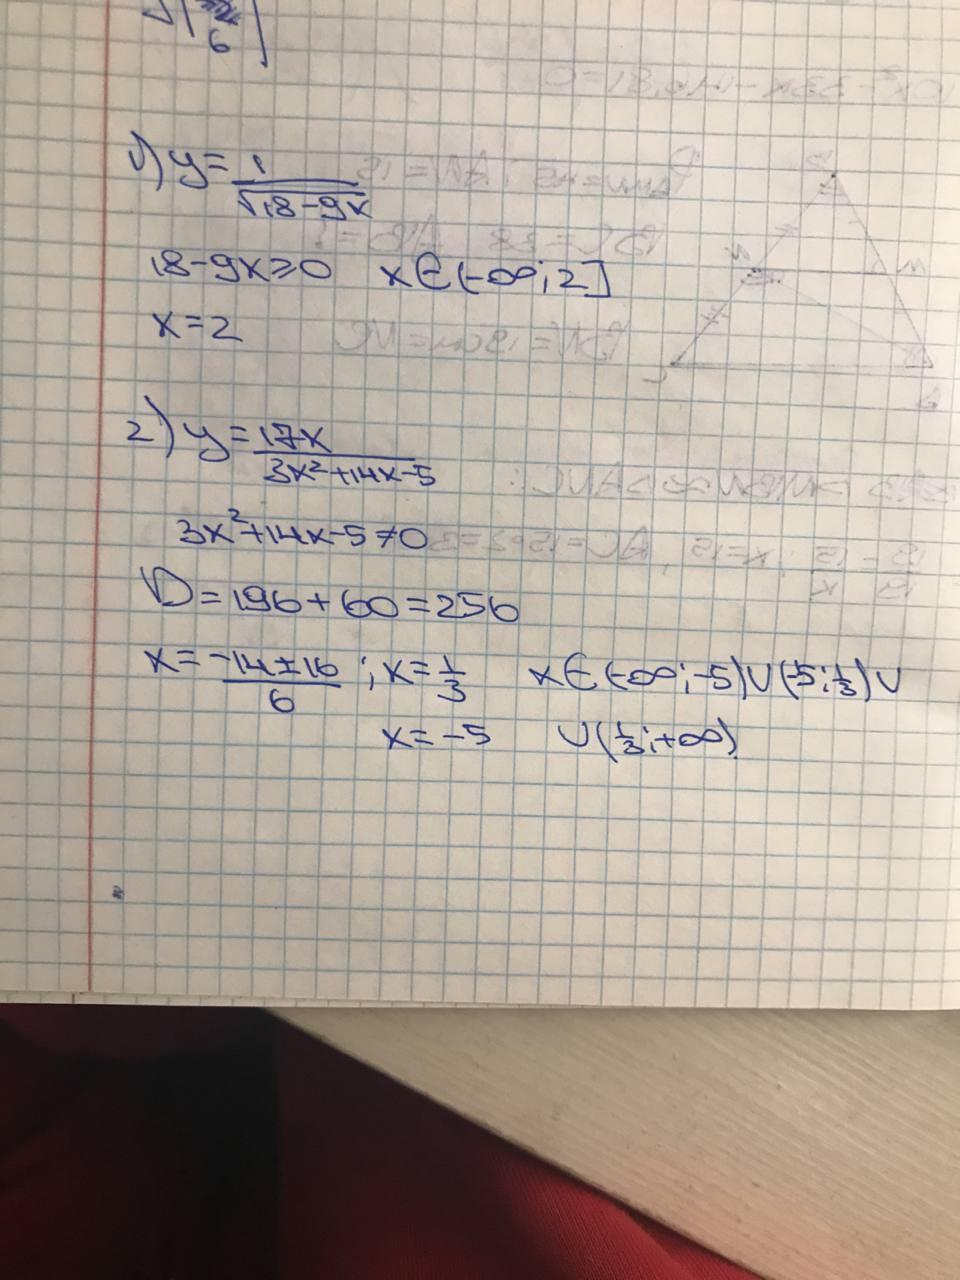 6
1) y = 1/√(18-9x)
18-9x≥0 x∈(-∞;2]
x=2
2) y = 17x/(3x²+14x-5)
3x²+14x-5≠0
D=196+60=256
x = (-14±16)/6 ; x=1/3 x∈(-∞;-5)∪(-5;1/3)∪
x=-5 ∪(1/3;+∞)